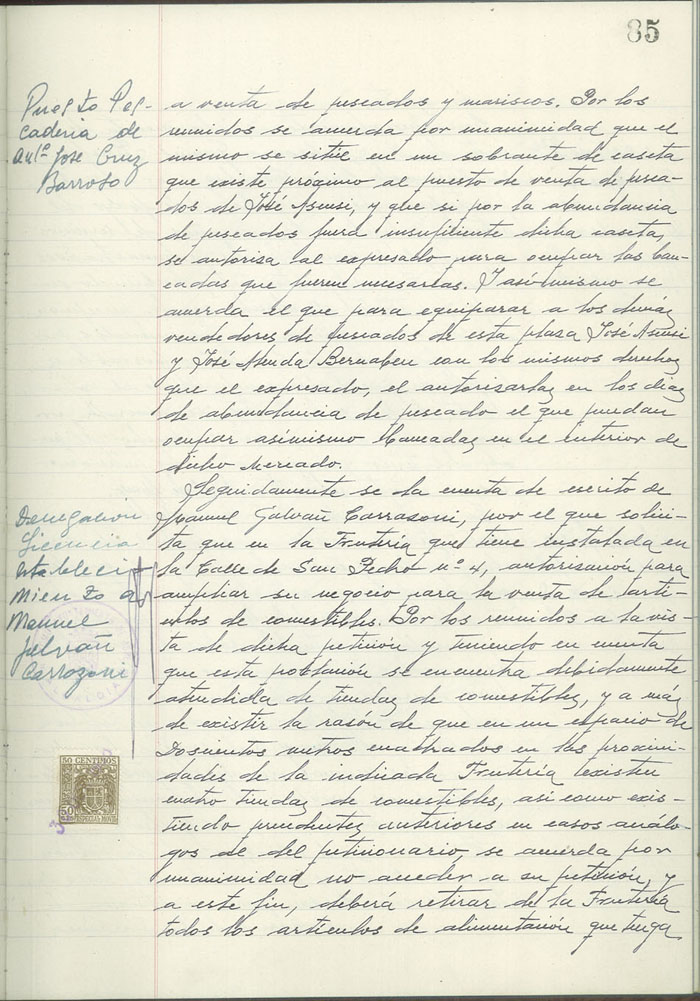 85
Puesto Pes-
caderia de
José Cruz
Barroso
a venta de pescados y mariscos. Por los
reunidos se acuerda por unanimidad que el
mismo se sitúe en un sobrante de caseta
que existe próximo al puesto de venta de pesca-
dos de José Asensi, y que si por la abundancia
de pescados fuera insuficiente dicha caseta,
se autoriza al expresado para ocupar las ban-
cadas que fueren necesarias. Y asimismo se
acuerda el que para equiparar a los demás
vendedores de pescados de esta plaza José Asensi
y José Bernabeu con los mismos derechos
que el expresado, el autorizarlas en los días
de abundancia de pescado el que puedan
ocupar asimismo bancadas en el interior de
dicho Mercado.
Denegación
Licencia
estableci-
miento a
Manuel
Galvañ
Carrazoni
Seguidamente se da cuenta de escrito de
Manuel Galvañ Carrazoni, por el que solici-
ta que en la Frutería que tiene instalada en
la Calle de San Pedro nº 4, autorización para
ampliar su negocio para la venta de artí-
culos de comestibles. Por los reunidos a la vis-
ta de dicha petición y teniendo en cuenta
que esta población se encuentra debidamente
atendida de tiendas de comestibles, y a más
de existir la razón de que en un espacio de
Doscientos metros cuadrados en las proximi-
dades de la indicada Frutería existen
cuatro tiendas de comestibles, así como exis-
tiendo precedentes anteriores en casos análo-
gos al del peticionario, se acuerda por
unanimidad no acceder a su petición, y
a este fin, deberá retirar de la Frutería
todos los artículos de alimentación que tenga
50 CENTIMOS
50
ESPECIAL MOVIL